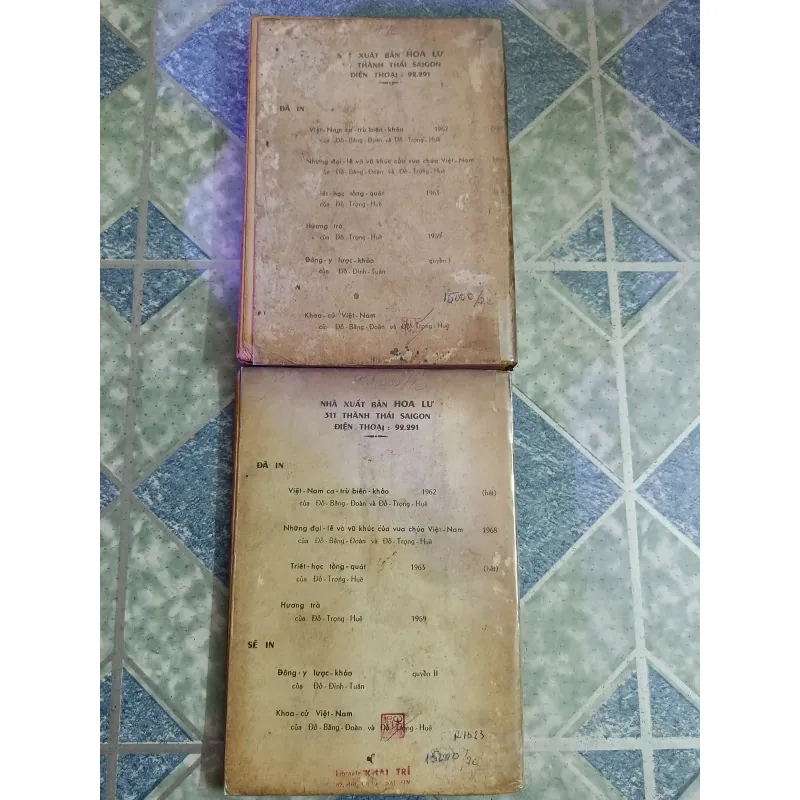 XUẤT BẢN HOA LƯ
THÀNH THÁI SAIGON
ĐIỆN THOẠI : 92.291
ĐÃ IN
Việt-Nam ca-trù biên-khảo 1962
của Đỗ-Bằng-Đoàn và Đỗ-Trọng-Huề
Những đại-lễ và vũ khúc của vua chúa Việt-Nam
của Đỗ-Bằng-Đoàn và Đỗ-Trọng-Huề
học tổng-quát 1963
của Đỗ-Trọng-Huề
Hương trà
của Đỗ-Trọng-Huề
Đông-y lược-khảo quyển I
của Đỗ-Đình-Tuân
15000/
Khoa-cử Việt-Nam
của Đỗ-Bằng-Đoàn và Đỗ-Trọng-Huề
NHÀ XUẤT BẢN HOA LƯ
311 THÀNH THÁI SAIGON
ĐIỆN THOẠI : 92.291
ĐÃ IN
Việt-Nam ca-trù biên-khảo 1962 (hết)
của Đỗ-Bằng-Đoàn và Đỗ-Trọng-Huề
Những đại-lễ và vũ khúc của vua chúa Việt-Nam 1968
của Đỗ-Bằng-Đoàn và Đỗ-Trọng-Huề
Triết-học tổng-quát 1963 (hết)
của Đỗ-Trọng-Huề
Hương trà
của Đỗ-Trọng-Huề 1969
SẼ IN
Đông-y lược-khảo quyển II
của Đỗ-Đình-Tuân
Khoa-cử Việt-Nam
của Đỗ-Bằng-Đoàn và Đỗ-Trọng-Huề
15000/
Librairie KHAI TRÍ